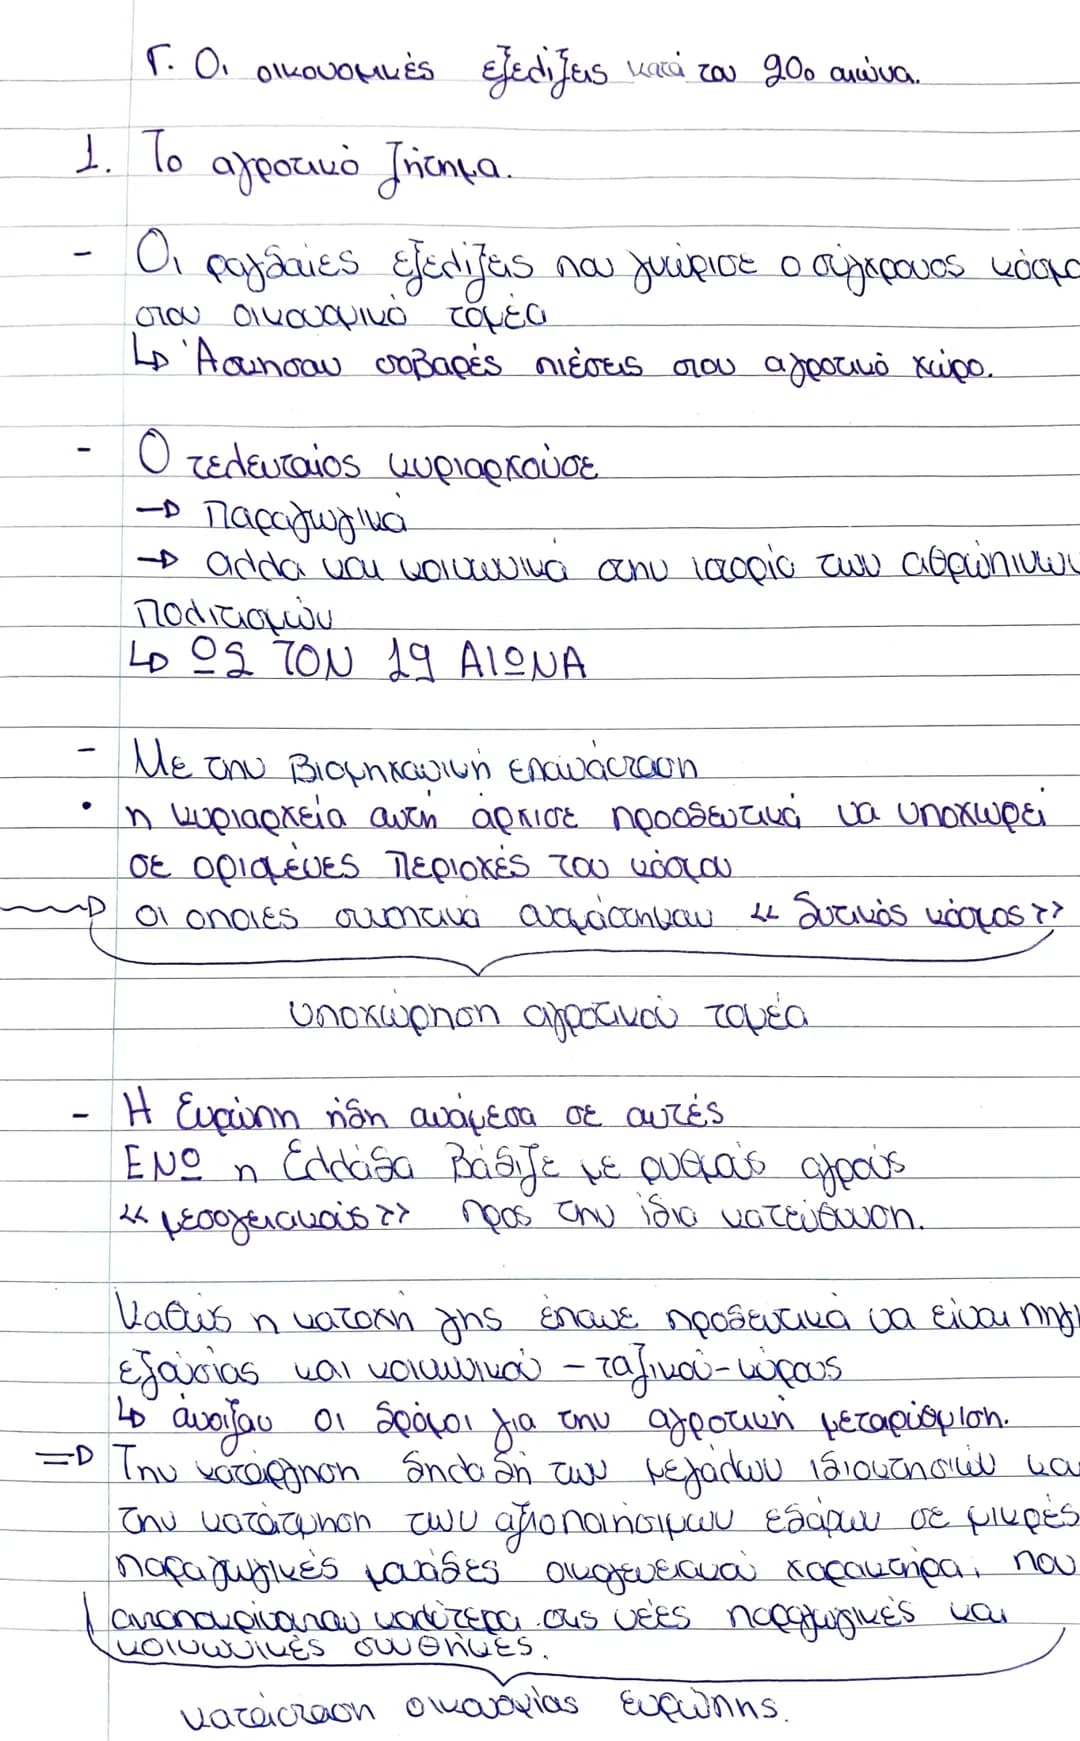 Γ. Οι οικονομικές εξελίξεις κατά τον 20ο αιώνα.
1. Το αγροτικό ζήτημα.
- Οι ραγδαίες εξελίξεις που γνώρισε ο σύγχρονος κόσμο
στον οικονομικό τομέα
↳ Άσκησαν σοβαρές πιέσεις στον αγροτικό χώρο.
- Ο τελευταίος κυριαρχούσε
→ Παραγωγικά
→ αλλα και κοινωνικά στην ιστορία των αθρώπινων
Πολιτισμών
↳ ΩΣ ΤΟΝ 19 ΑΙΩΝΑ
- Με την Βιομηχανική επανάσταση
• η κυριαρχεία αυτή άρχισε προοδευτικά να υποχωρεί
σε ορισμένες Περιοχές του κόσμου
→ οι οποιες συστατικά ονομάστηκαν << δυτικός κόσμος >>
υποχώρηση αγροτικού τομέα
- Η Ευρώπη ήδη ανάμεσα σε αυτές
ΕΝΩ η Ελλάδα Βάδιζε με ρυθμούς αργούς
<< μεσογειακούς >> προς την ίδια κατεύθυνση.
Καθώς η κατοχή γης έπαυε προδευτικά να είναι πηγή
εξουσίας και κοινωνικού - ταξικού - κύρους
↳ άνοιξαν οι δρόμοι για την αγροτική μεταρύθμιση.
⇒ Την κατάργηση δηλαδή των μεγάλων ιδιοκτησιών και
την κατάτμηση των αξιοποιήσιμων εδάφων σε μικρές
παραγωγικές μονάδες οικογενειακού χαρακτήρα, που
ανταποκρίνονταν καλύτερα στις νέες παραγωγικές και
κοινωνικές συνθήκες.
κατάσταση οικονομίας Ευρώπης.